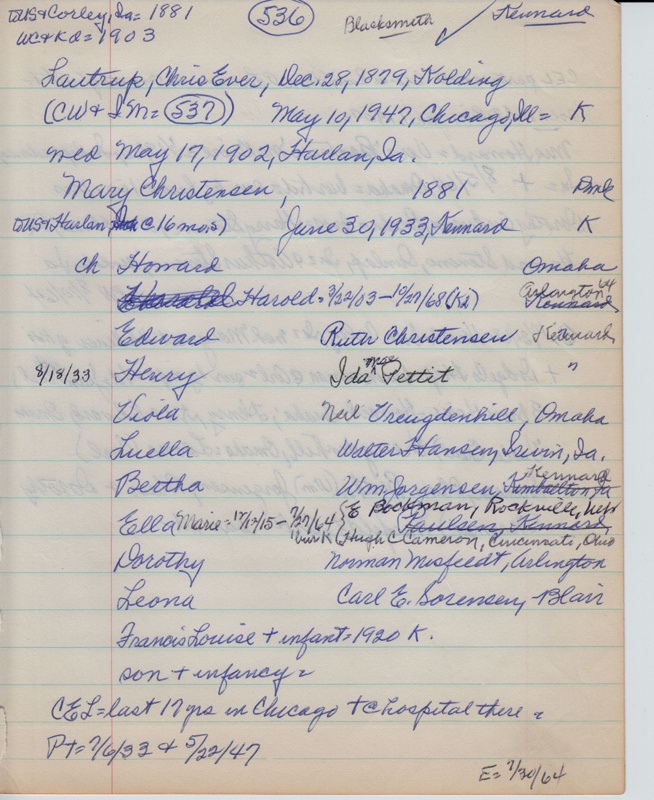 TUS & Corley, Ia = 1881 536 Blacksmith ✓ Kennard
WC & Kd = 1903
Lautrup, Chris Ever, Dec. 28, 1879, Kolding
(CW & IM = 537) May 10, 1947, Chicago, Ill = K
wed May 17, 1902, Harlan, Ia.
Mary Christensen, 1881 Dmk
TUS & Harlan, C 16 mo,s) June 30, 1933, Kennard K
ch Howard Omaha
Harold = 3/22/03 - 10/27/68 (Kd) Arlington 64 Kennard
Edward Ruth Christensen Kennard
8/18/33 Henry Ida Mae Pettit "
Viola Neil Vreugdenhill, Omaha
Luella Walter Hansen, Irvin, Ia.
Bertha Wm Jorgensen, Kimballton Ia Kennard
Ella Marie = 12/17/15 - 7/27/64 E Bockman, Rockville, Nebr
Paulsen, Kennard
(Hugh C Cameron, Cincinnati, Ohio
Dorothy Norman Misfeldt, Arlington
Leona Carl E. Sorensen, Blair
Francis Louise + infant = 1920 K.
son + infancy =
CEL = last 17 yrs in Chicago + C hospital there =
PT = 7/6/33 & 5/22/47
E = 7/30/64